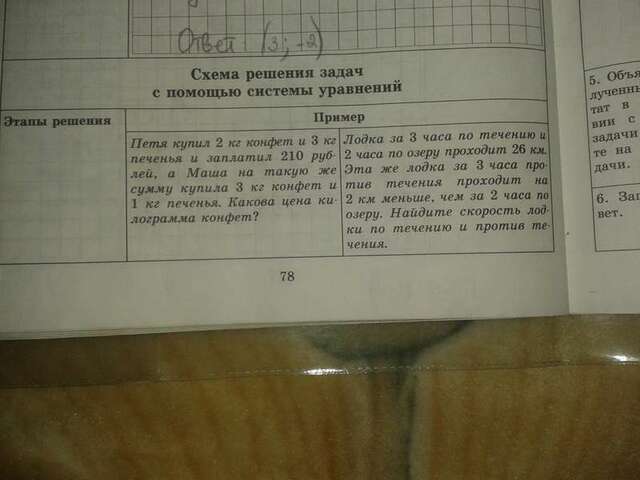 Ответ: (3; -2)
Схема решения задач
с помощью системы уравнений
Этапы решения
Пример
Петя купил 2 кг конфет и 3 кг
печенья и заплатил 210 руб-
лей, а Маша на такую же
сумму купила 3 кг конфет и
1 кг печенья. Какова цена ки-
лограмма конфет?
Лодка за 3 часа по течению и
2 часа по озеру проходит 26 км.
Эта же лодка за 3 часа про-
тив течения проходит на
2 км меньше, чем за 2 часа по
озеру. Найдите скорость лод-
ки по течению и против те-
чения.
78
5. Объя
лученны
тат в
вии с
задачи
те на
дачи.
6. Зап
вет.